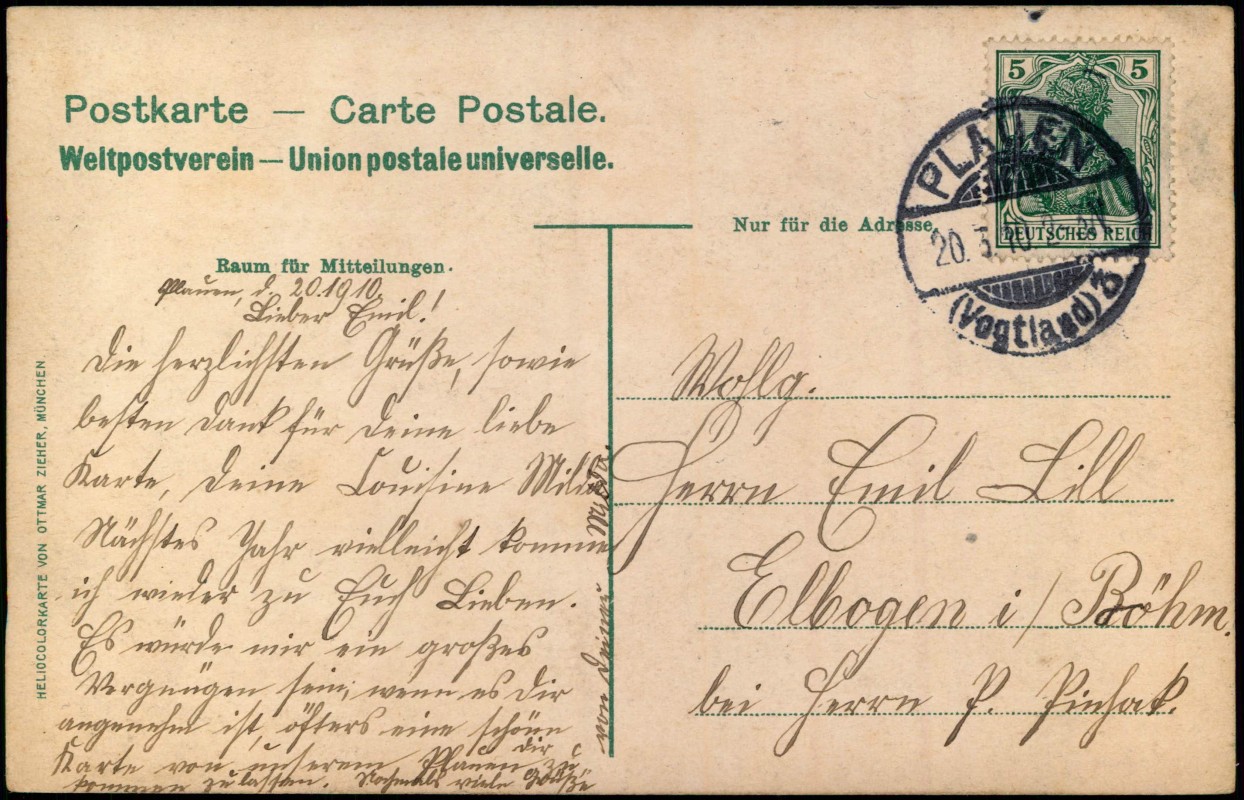 Postkarte — Carte Postale.
Weltpostverein — Union postale universelle.
5 5
DEUTSCHES REICH
PLAUEN
20. 3. 10. 2-3N
(Vogtland)
Nur für die Adresse.
Raum für Mitteilungen.
Plauen, d. 20.1910.
Lieber Emil!
Die herzlichsten Grüße, sowie
besten Dank für Deine liebe
Karte, Deine Cousine Milli
Nächstes Jahr vielleicht komme
ich wieder zu Euch Lieben.
Es würde mir ein großes
Vergnügen sein, wenn es Dir
angenehm ist, öfters eine schöne
Karte von unserem Plauen Dir zu
kommen zu lassen. Nochmals viele Grüße
von Deiner
Wohlg.
Herrn Emil Lill
Elbogen i/Böhm.
bei Herrn P. Pinhak.
HELIOCOLORKARTE VON OTTMAR ZIEHER, MÜNCHEN